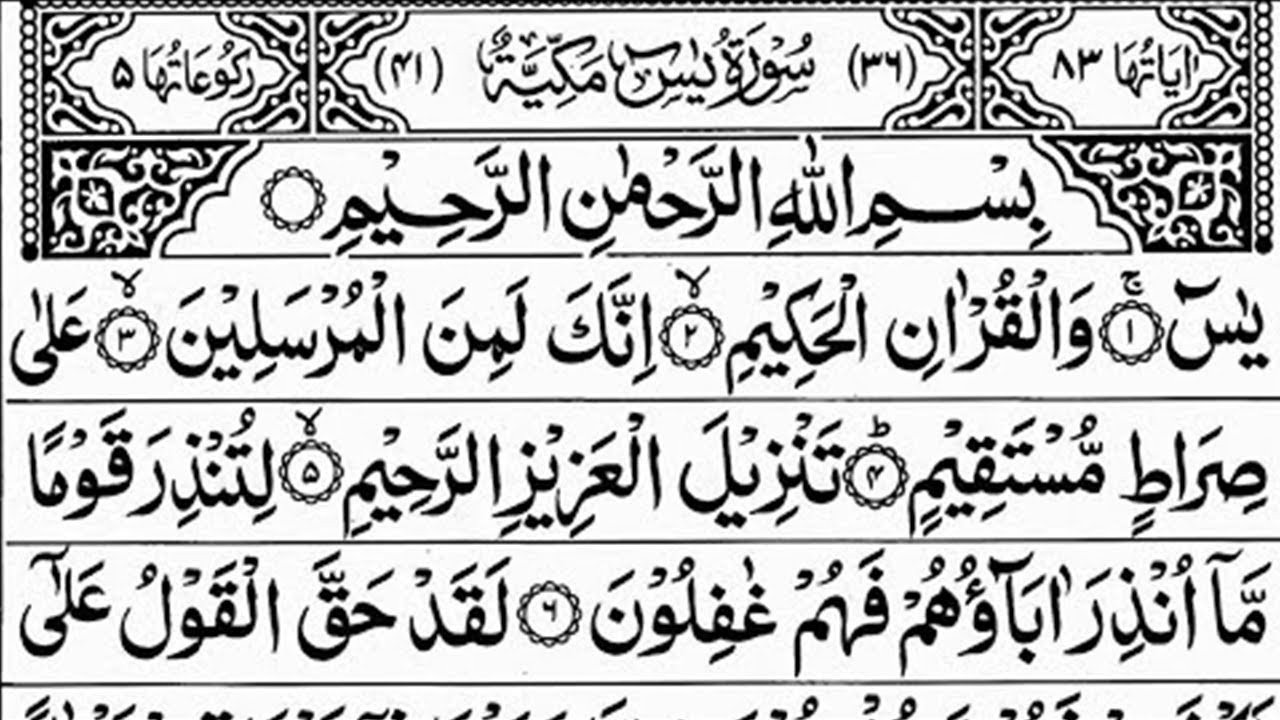 اٰيَاتُهَا ٨٣ (٣٦) سُوْرَةُ يٰسٓ مَكِّيَّةٌ (٤١) رُكُوْعَاتُهَا ٥
بِسْمِ اللّٰهِ الرَّحْمٰنِ الرَّحِيْمِ
يٰسٓ ۚ‏﴿١﴾ وَالْقُرْاٰنِ الْحَكِيْمِ ۙ‏﴿٢﴾ اِنَّكَ لَمِنَ الْمُرْسَلِيْنَ ۙ‏﴿٣﴾ عَلٰى
صِرَاطٍ مُّسْتَقِيْمٍ ؕ‏﴿٤﴾ تَنْزِيْلَ الْعَزِيْزِ الرَّحِيْمِ ۙ‏﴿٥﴾ لِتُنْذِرَ قَوْمًا
مَّآ اُنْذِرَ اٰبَآؤُهُمْ فَهُمْ غٰفِلُوْنَ ﴿٦﴾ لَقَدْ حَقَّ الْقَوْلُ عَلٰٓى